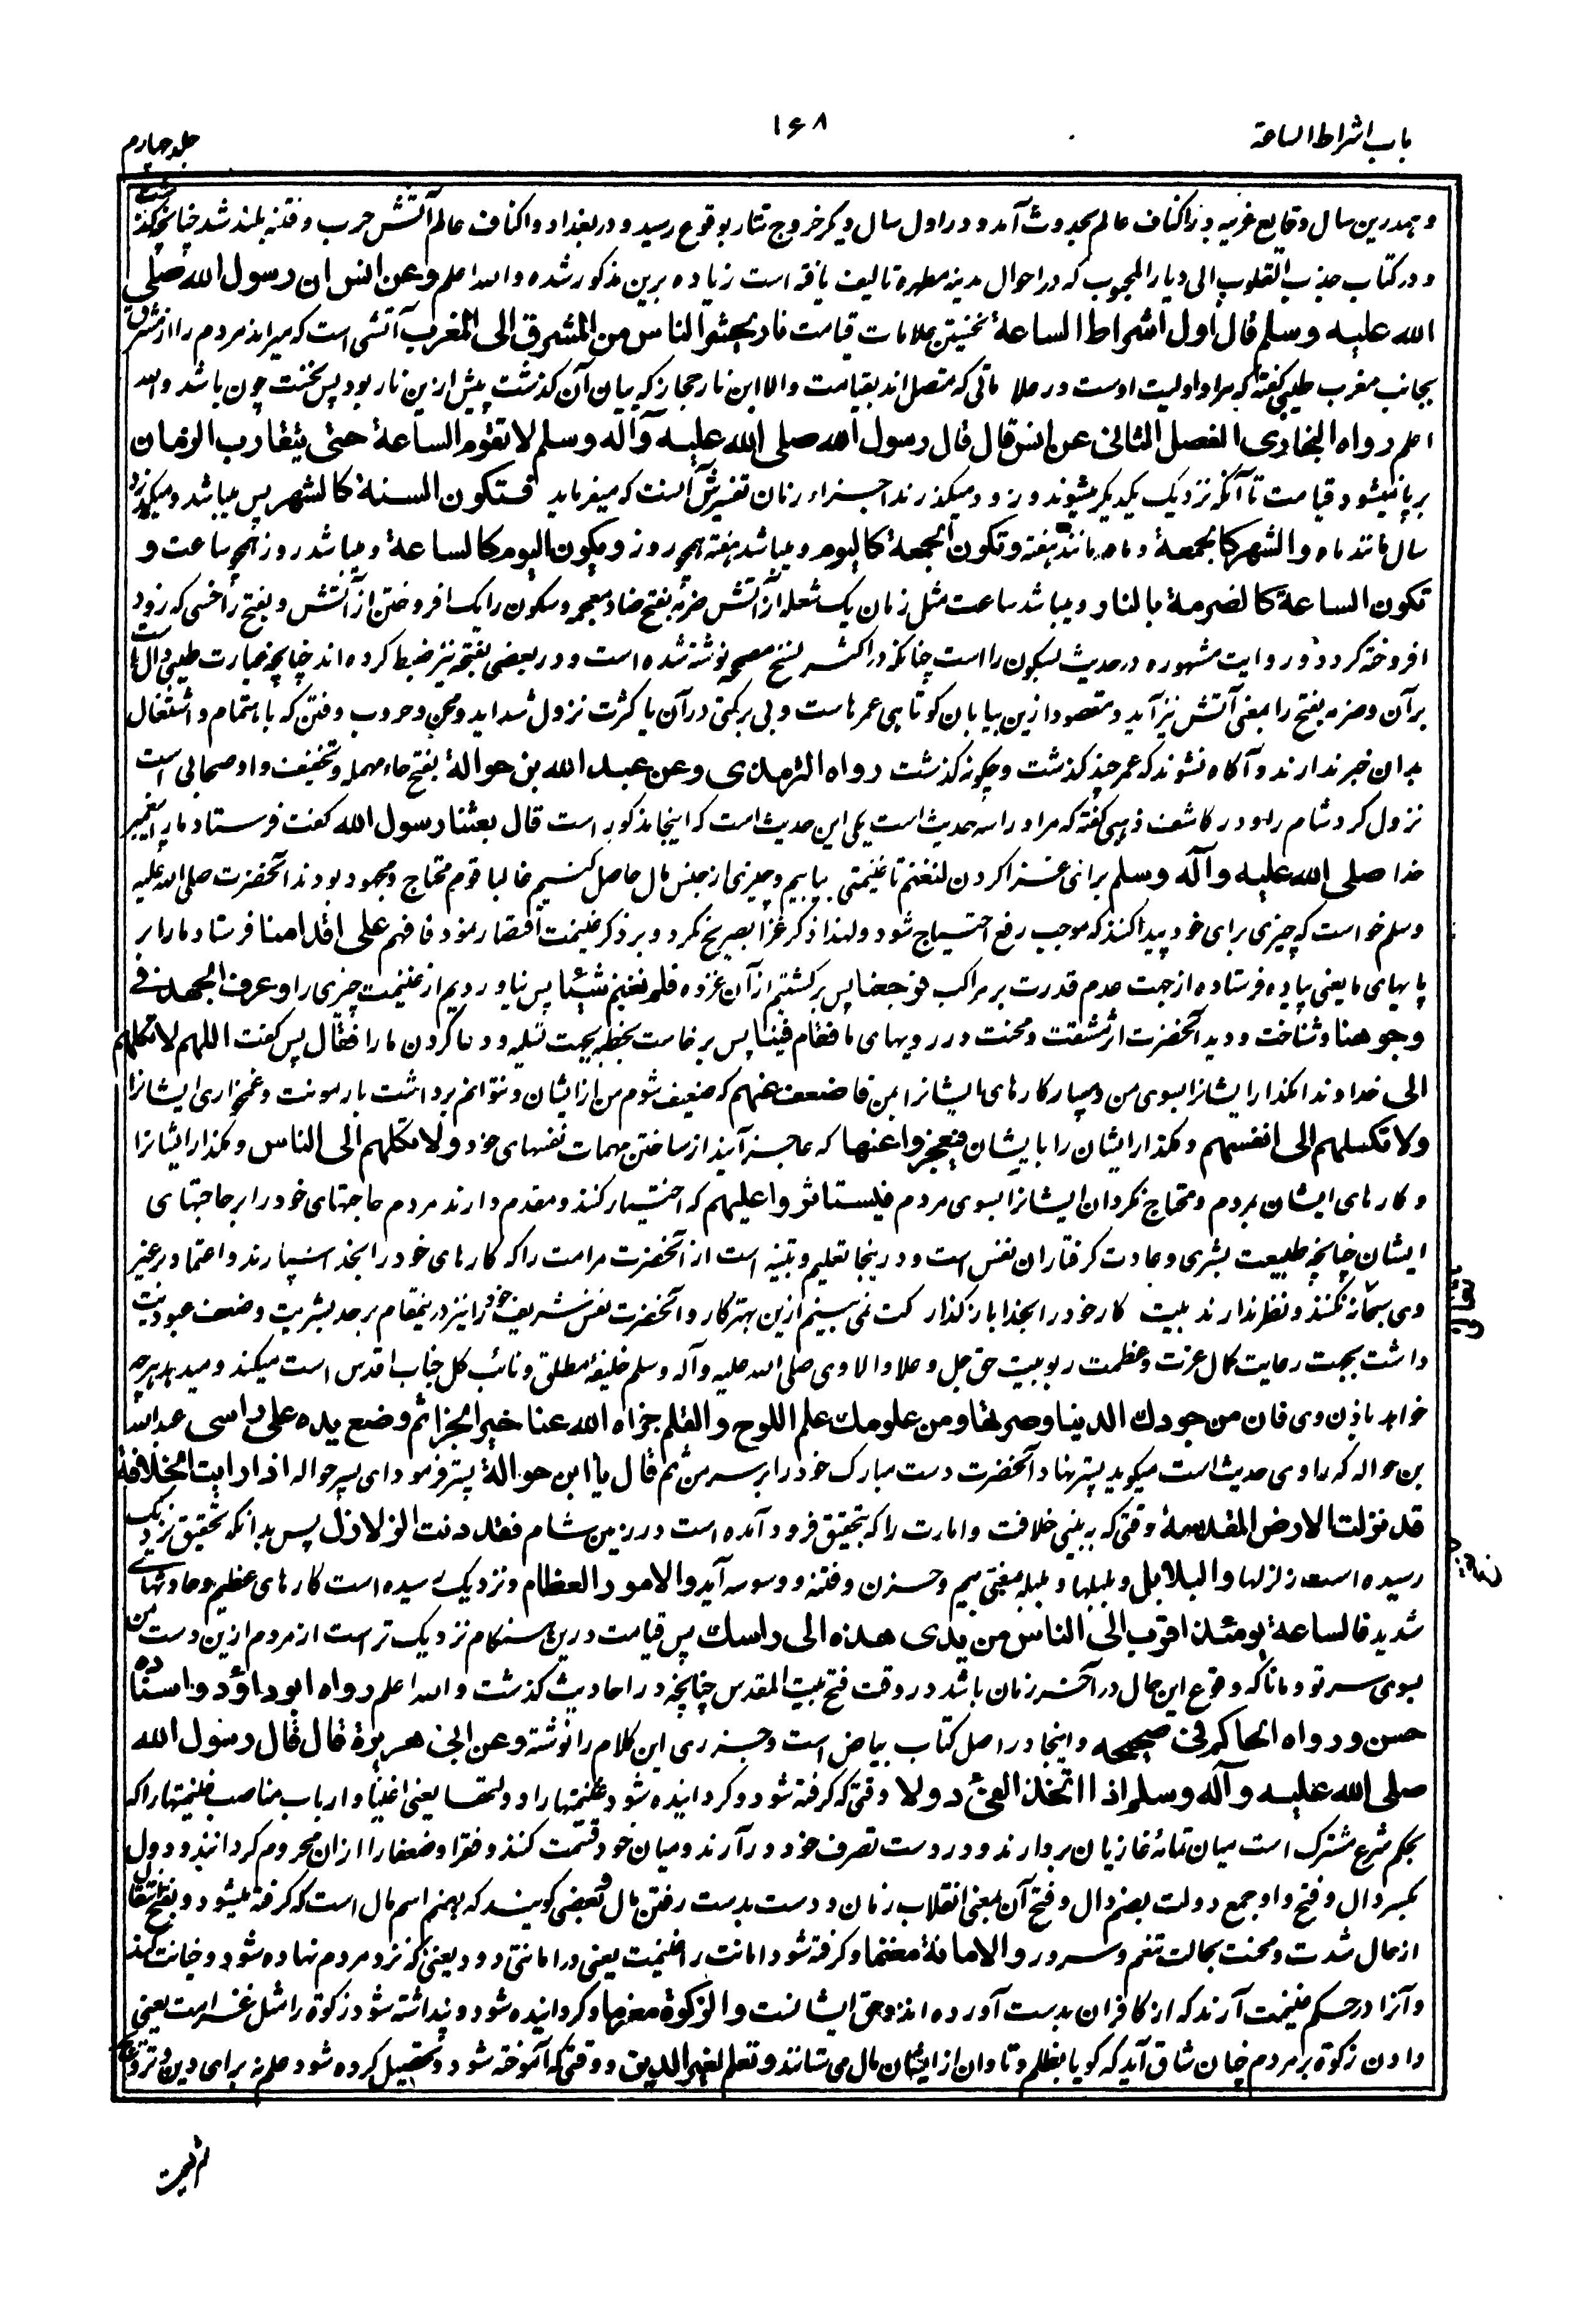 باب اشراط الساعة
۱۶۸
جلد چهارم
و همدرین سال وقایع غریبه در اکناف عالم بحدوث آمد و در اول سال دیگر خروج تتار بوقوع رسید و در بغداد و اکناف عالم آتش حرب و فتنه بلند شد چنانچه گذشت
و در کتاب جذب القلوب الی دیار المحبوب که در احوال مدینه مطهره تالیف یافته است زیاده برین مذکور شده و الله اعلم وعن انس ان رسول الله صلی
الله علیه وسلم قال اول اشراط الساعة نخستین علامات قیامت نار تحشر الناس من المشرق الی المغرب آتشی است که میراند مردم را از مشرق
بجانب مغرب طیبی گفته که مراد اولیت اوست در علاماتی که متصل اند بقیامت والا این نار حجاز که بیان آن گذشت پیش ازین نار بود پس نخست چون باشد والله
اعلم رواه البخاری الفصل الثانی عن انس قال قال رسول الله صلی الله علیه وآله وسلم لا تقوم الساعة حتی یتقارب الزمان
برپا نمیشود قیامت تا آنکه نزدیک یکدیگر میشوند و زود میگذرند اجزاء زمان تفسیرش آنست که میفرماید فتکون السنة کالشهر پس میباشد و میگذرد
سال مانند ماه والشهر کالجمعة و ماه مانند هفته وتکون الجمعة کالیوم و میباشد هفته همچو روز ویکون الیوم کالساعة و میباشد روز همچو ساعت و
تکون الساعة کالضرمة بالنار و میباشد ساعت مثل زمان یک شعله از آتش ضرمه بفتح ضاد معجمه و سکون را یک افروختن از آتش و بفتح را خسی که زود
افروخته گردد و روایت مشهوره در حدیث بسکون را است چنانکه در اکثر نسخ مصححه نوشته شده است و در بعضی بفتحه نیز ضبط کرده اند چنانچه عبارت طیبی دال است
برآن و ضرمه بفتح را بمعنی آتش نیز آید و مقصود ازین بیان کوتاهی عمرهاست و بی برکتی در آن یا کثرت نزول شداید و محن و حروب و فتن که باهتمام و اشتغال
بدان خبر ندارند و آگاه نشوند که عمر چند گذشت و چگونه گذشت رواه الترمذی وعن عبد الله بن حوالة بفتح حاء مهمله و تخفیف واو صحابی است
نزول کرد شام را و در کاشف ذهبی گفته که مراو را سه حدیث است یکی این حدیث است که اینجا مذکور است قال بعثنا رسول الله گفت فرستاد ما را پیغمبر
خدا صلی الله علیه وآله وسلم برای غزا کردن لنغنم تا غنیمتی بیابیم و چیزی از جنس مال حاصل کنیم غالبا قوم محتاج و مجهود بودند آنحضرت صلی الله علیه
وسلم خواست که چیزی برای خود پیدا کنند که موجب رفع احتیاج شود و لهذا ذکر غزا بصریح نکرد و بر ذکر غنیمت اقتصار نمود فافهم علی اقدامنا فرستاد ما را بر
پایهای ما یعنی پیاده فرستاده از جهت عدم قدرت بر مراکب فرجعنا پس برگشتیم از آن غزوه فلم نغنم شیئا پس نیاوردیم از غنیمت چیزی را وعرف الجهد فی
وجوهنا و شناخت و دید آنحضرت اثر مشقت و محنت در رویهای ما فقام فینا پس برخاست بخطبه بجهت تسلیه و دعا کردن ما را فقال پس گفت اللهم لا تکلهم
الی خداوندا مگذار ایشانرا بسوی من و مسپار کارهای ایشانرا بمن فاضعف عنهم که ضعیف شوم من از ایشان و نتوانم برداشت بار مونت و غمخواری ایشانرا
ولا تکلهم الی انفسهم و مگذار ایشان را بایشان فیعجزوا عنها که عاجز آیند از ساختن مهمات نفسهای خود ولا تکلهم الی الناس و مگذار ایشانرا
و کارهای ایشان بمردم و محتاج مگردان ایشانرا بسوی مردم فیستاثروا علیهم که اختیار کنند و مقدم دارند مردم حاجتهای خود را بر حاجتهای
ایشان چنانچه طبیعت بشری و عادت گرفتاران نفس است و درینجا تعلیم و تنبیه است از آنحضرت مر امت را که کارهای خود را بخدا سپارند و اعتماد بر غیر
وی سبحانه نکنند و نظر ندارند بیت کار خود را بخدا باز گذار کت نمی بینم ازین بهتر کار و آنحضرت نفس شریف خود را نیز درینمقام بر حد بشریت و ضعف عبودیت
داشت بجهت رعایت کمال عزت و عظمت ربوبیت حق جل و علا والا وی صلی الله علیه وآله وسلم خلیفه مطلق و نائب کل جناب اقدس است میکند و میدهد هر چه
خواهد باذن وی فان من جودك الدنیا وضرتها ومن علومك علم اللوح والقلم جزاه الله عنا خیر الجزا ثم وضع یده علی راسی عبدالله
بن حواله که راوی حدیث است میگوید پستر نهاد آنحضرت دست مبارک خود را بر سر من ثم قال یا ابن حوالة پستر فرمود ای پسر حواله اذا رایت الخلافة
قد نزلت الارض المقدسة وقتی که به بینی خلافت و امارت را که بتحقیق فرود آمده است در زمین شام فقد دنت الزلازل پس بدانکه تحقیق نزدیک
رسیده است زلزلها والبلابل و بلبلها و بلبله بمعنی هم و حزن و فتنه و وسوسه آید والامور العظام و نزدیک رسیده است کارهای عظیم و حادثهای
شدید فالساعة یومئذ اقرب الی الناس من یدی هذه الی راسك پس قیامت درین هنگام نزدیک تر است از مردم ازین دست من
بسوی سر تو و مانا که وقوع این حال در آخر زمان باشد در وقت فتح بیت المقدس چنانچه در احادیث گذشت والله اعلم رواه ابوداؤد واسناده
حسن ورواه الحاکم فی صحیحه و اینجا در اصل کتاب بیاض است و جزری این کلام را نوشته وعن ابی هریرة قال قال رسول الله
صلی الله علیه وآله وسلم اذا اتخذ الفیء دولا وقتی که گرفته شود و گردانیده شود غنیمتها را دولتها یعنی اغنیا و ارباب مناصب غنیمتها را که
بحکم شرع مشترک است میان تمامه غازیان بردارند و در دست تصرف خود در آرند و میان خود قسمت کنند و فقرا و ضعفا را ازان محروم گردانند و دول
بکسر دال و فتح واو جمع دولت بضم دال و فتح آن بمعنی انقلاب زمان و دست بدست رفتن مال و بعضی گویند که بضم اسم مال است که گرفته میشود و بفتح انتقال
از حال شدت و محنت بحالت تنعم و سرور والامانة مغنما و گرفته شود امانت را غنیمت یعنی در امانتی و ودیعتی که نزد مردم نهاده شود و خیانت کنند
و آنرا در حکم غنیمت آرند که از کافران بدست آورده اند و حق ایشانست والزکوة مغرما و گردانیده شود و پنداشته شود زکوة را مثل غرامت یعنی
دادن زکوة بر مردم چنان شاق آید که گویا بظلم و تاوان از ایشان مال می ستانند وتعلم لغیر الدین و وقتی که آموخته شود و تحصیل کرده شود علم نه برای دین و ترویج